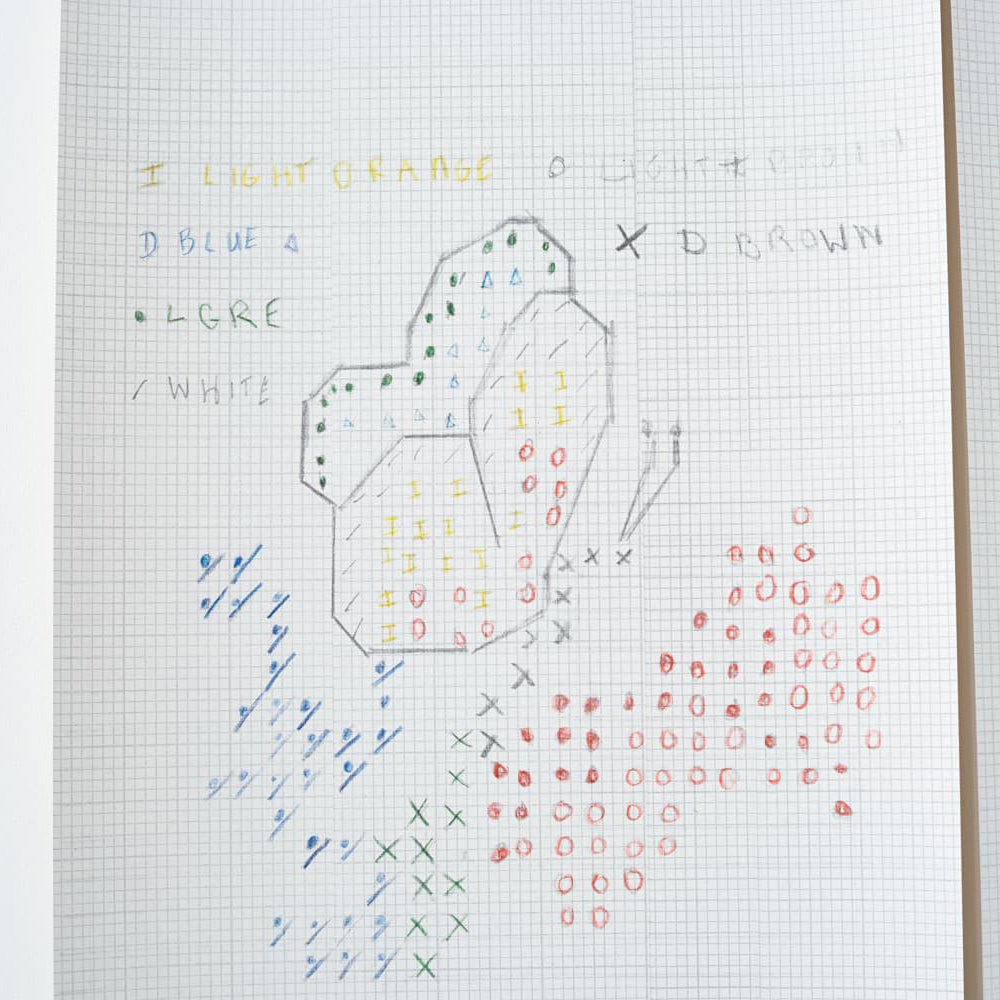 I LIGHT ORANGE O LIGHT BROWN
D BLUE X D BROWN
L GRE
/ WHITE